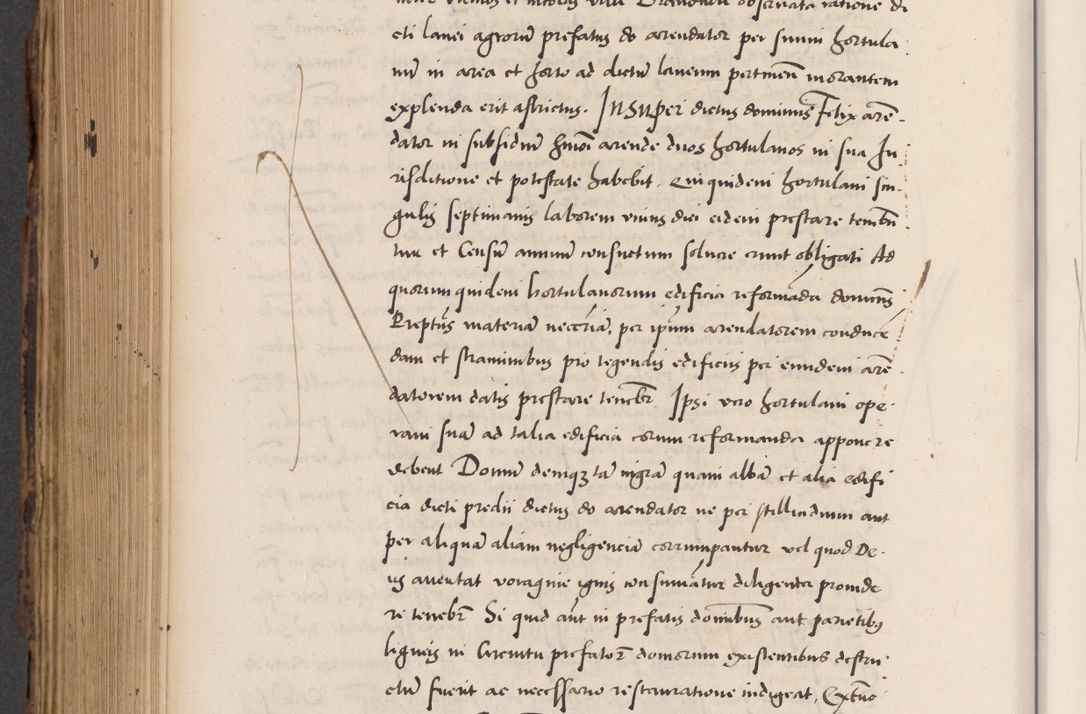 cti lanei agrorum prefatus do arendator per suum hortula
num in area et horto ad dictum laneum pertinen morantem
explenda erit astrictus. Insuper dictus dominus Felix aren
dator in subsidium hmoi arende duos hortulanos in sua Iu
risditione et potestate habebit. Qui quidem hortulani sin
gulis septimanis laborem unius diei eidem prestare tenebun
tur et Censum annuum consuetum solvere erunt obligati Ad
quorum quidem hortulanorum edificia reformanda dominus
Preptus materiam necriam, per ipsum arendatorem conducen
dam et straminibus pro tegendis edificiis per eundem aren
datorem datis prestare tenebr Ipsi vero hortulani ope
ram suam ad talia edificia eorum reformanda apponere
debent Domum demque tam nigram quam albam et alia edifi
cia dicti predii dictus do arendator ne per stillicidium aut
per aliquam aliam negligenciam corrumpantur vel quod De
us avertat voragine ignis consumantur diligenter provide
re tenebr Si quid aut in prefatis domibus aut parietibus
ligneis in Circuitu prefator domorum existentibus destru
ctum fuerit ac necessario restauratione indigeat,